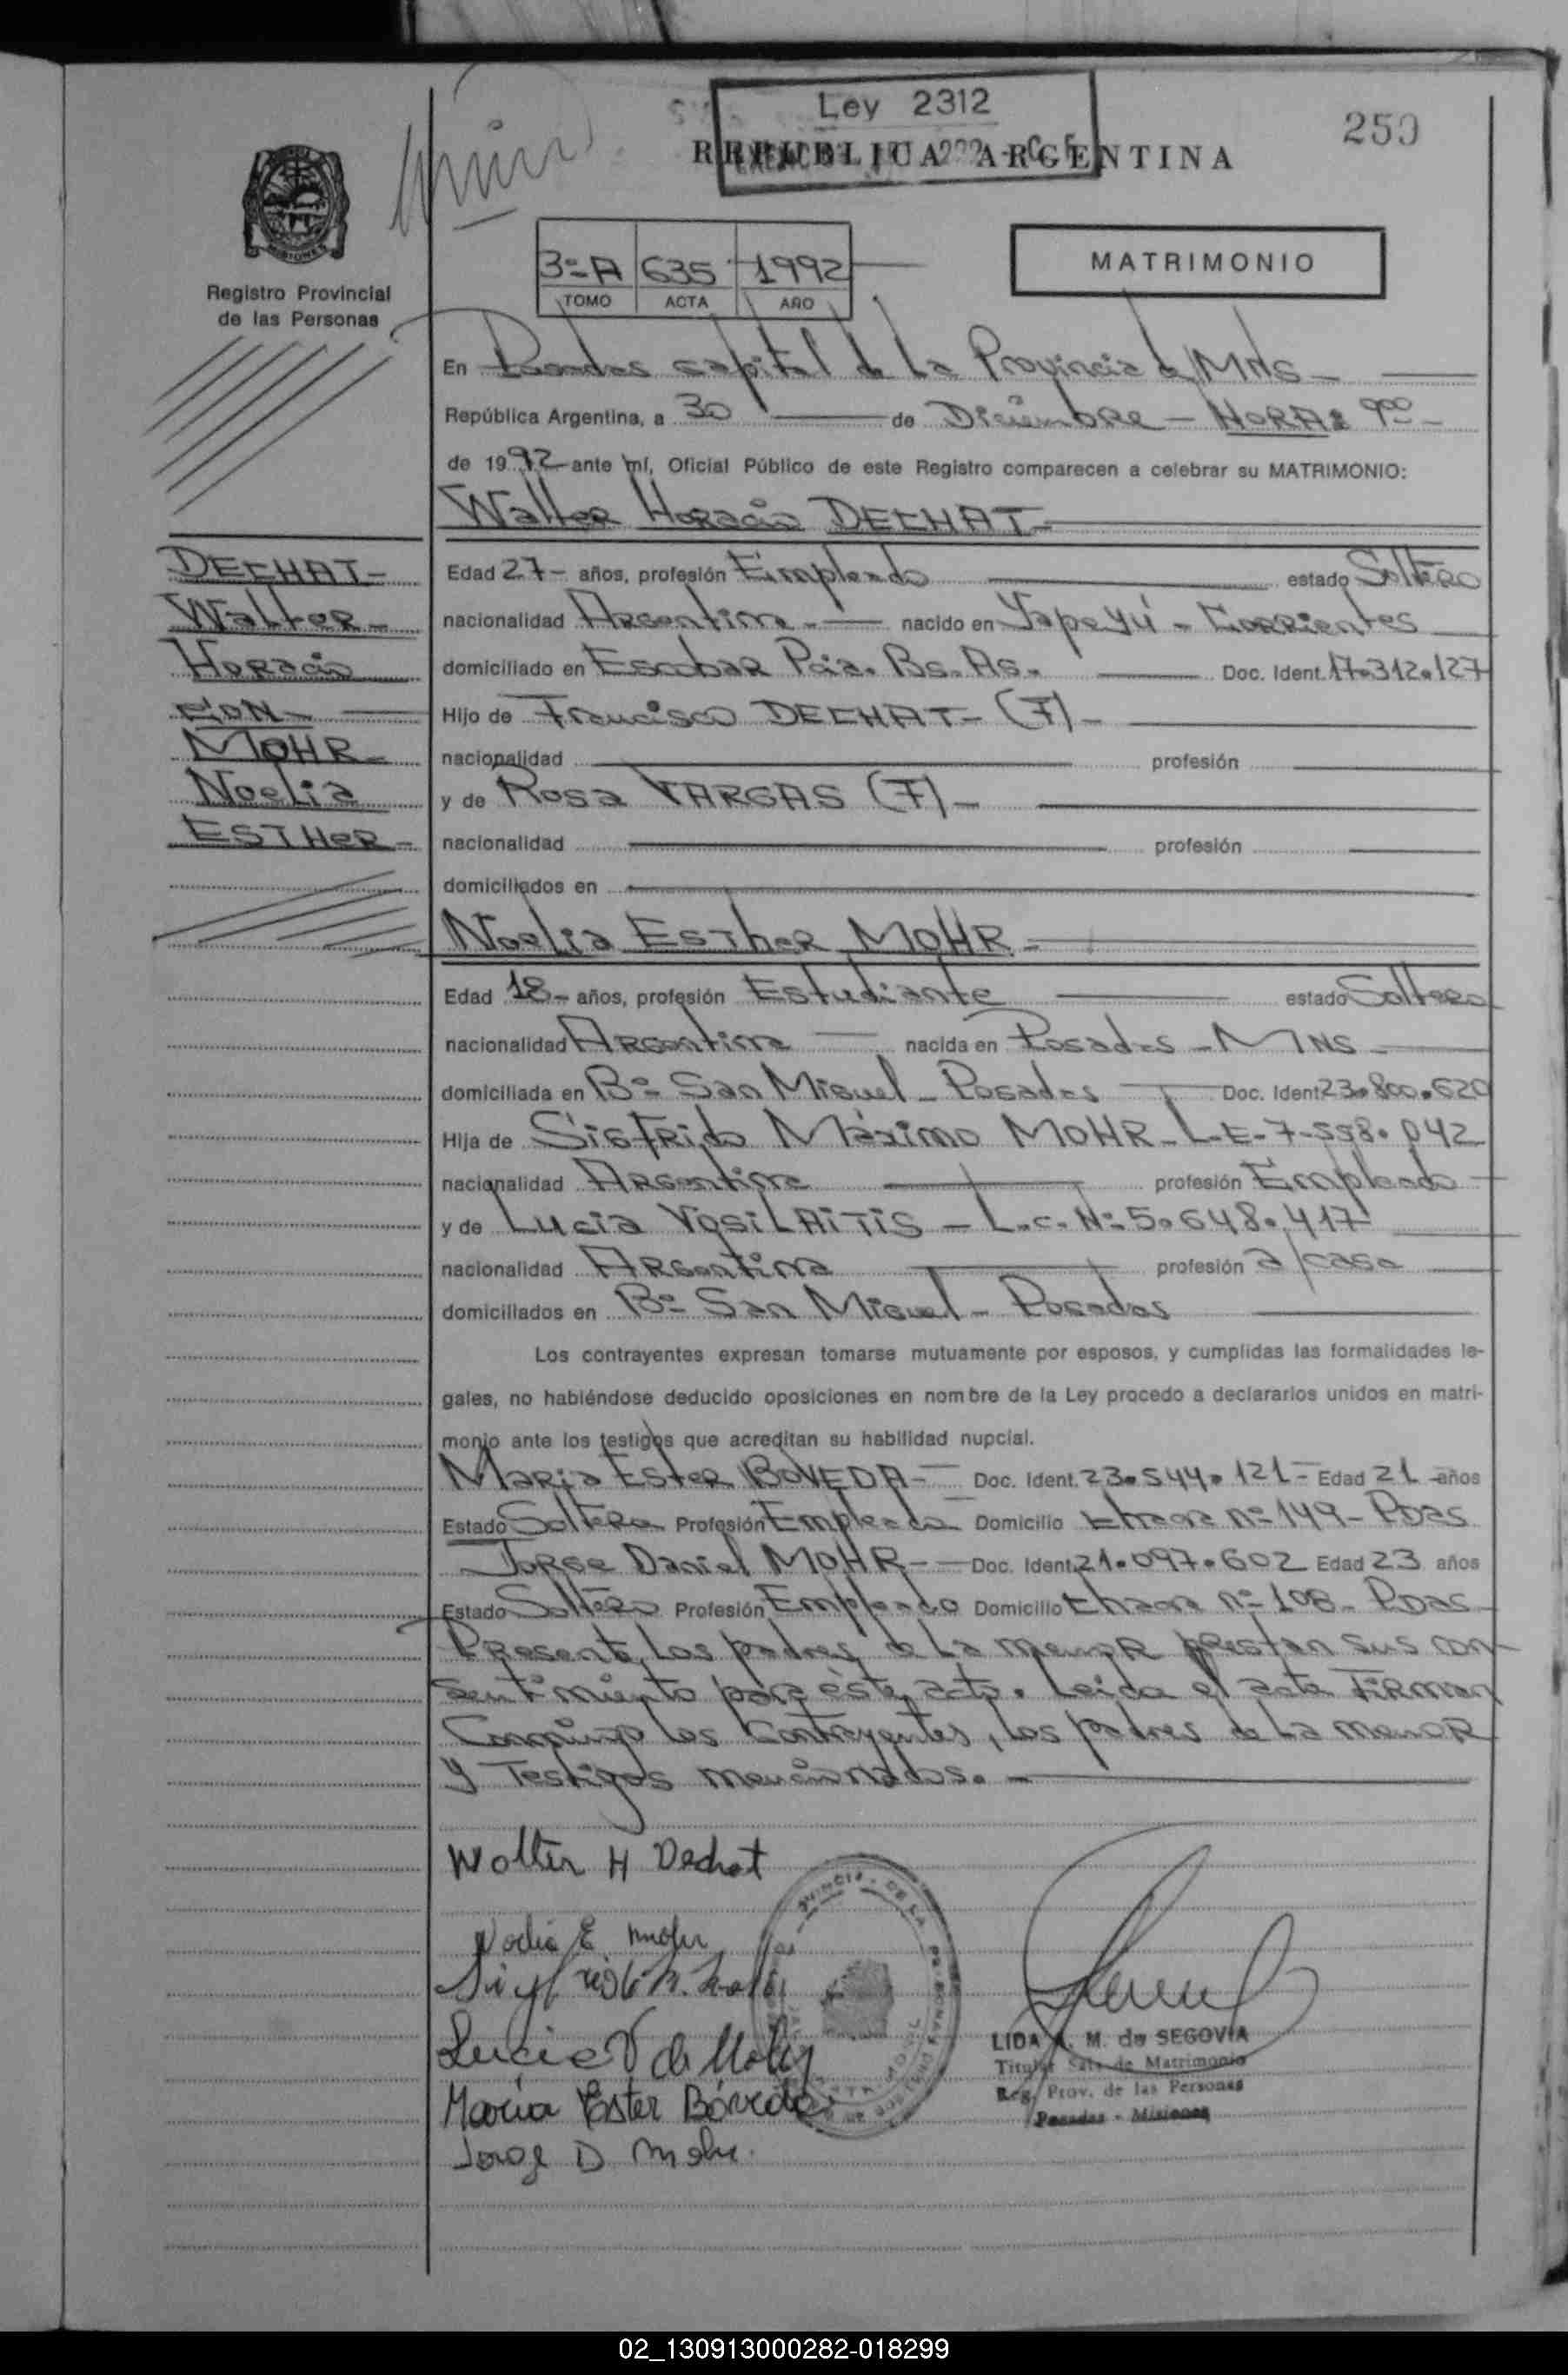 Ley 2312
250
REPUBLICA ARGENTINA
MATRIMONIO
3º A 635 1992
TOMO ACTA AÑO
Registro Provincial
de las Personas
En Posadas capital de La Provincia de Mns -
República Argentina, a 30 de Diciembre - HORA: 9:00 -
de 1992 ante mí, Oficial Público de este Registro comparecen a celebrar su MATRIMONIO:
Walter Horacio DECHAT -
DECHAT -
Walter -
Horacio
CON -
MOHR -
Noelia
ESTHER -
Edad 27 - años, profesión Empleado estado Soltero
nacionalidad Argentina - nacido en Yapeyú - Corrientes
domiciliado en Escobar Pcia. Bs. As. - Doc. Ident. 17.312.127
Hijo de Francisco DECHAT - (F) -
nacionalidad profesión
y de Rosa VARGAS (F) -
nacionalidad profesión
domiciliados en
Noelia Esther MOHR -
Edad 18 - años, profesión Estudiante estado Soltera
nacionalidad Argentina nacida en Posadas - MNS -
domiciliada en Bº San Miguel - Posadas Doc. Ident 23.800.620
Hija de Sigfrido Máximo MOHR - L.E - 7.558.042
nacionalidad Argentina profesión Empleado
y de Lucia VOSILAITIS - L.C. Nº 5.648.417
nacionalidad Argentina profesión a/casa
domiciliados en Bº San Miguel - Posadas
Los contrayentes expresan tomarse mutuamente por esposos, y cumplidas las formalidades le-
gales, no habiéndose deducido oposiciones en nombre de la Ley procedo a declararlos unidos en matri-
monio ante los testigos que acreditan su habilidad nupcial.
Maria Ester BOVEDA - Doc. Ident. 23.544.121 - Edad 21 años
Estado Soltera Profesión Empleada Domicilio nº 149 - Pdas
Jorge Daniel MOHR - Doc. Ident. 21.097.602 Edad 23 años
Estado Soltero Profesión Empleado Domicilio nº 108 - Pdas -
Presente los padres de La menor prestan sus con-
sentimiento para éste acto. Leida el acta Firman
Conmigo los Contrayentes, los padres de La menor
y Testigos mencionados. -
Walter H Dechat
Noelia E. Mohr
Lucia V de Mohr
Maria Ester Bóveda
Jorge D Mohr.
LIDA A. M. de SEGOVIA
Titular Sala de Matrimonio
Reg. Prov. de las Personas
Posadas - Misiones
02_130913000282-018299